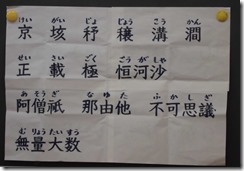 けい がい じょ じょう こう かん
京 垓 𥝱 穣 溝 澗
せい さい ごく ごうがしゃ
正 載 極 恒河沙
あそうぎ なゆた ふかしぎ
阿僧祇 那由他 不可思議
むりょうたいすう
無量大数